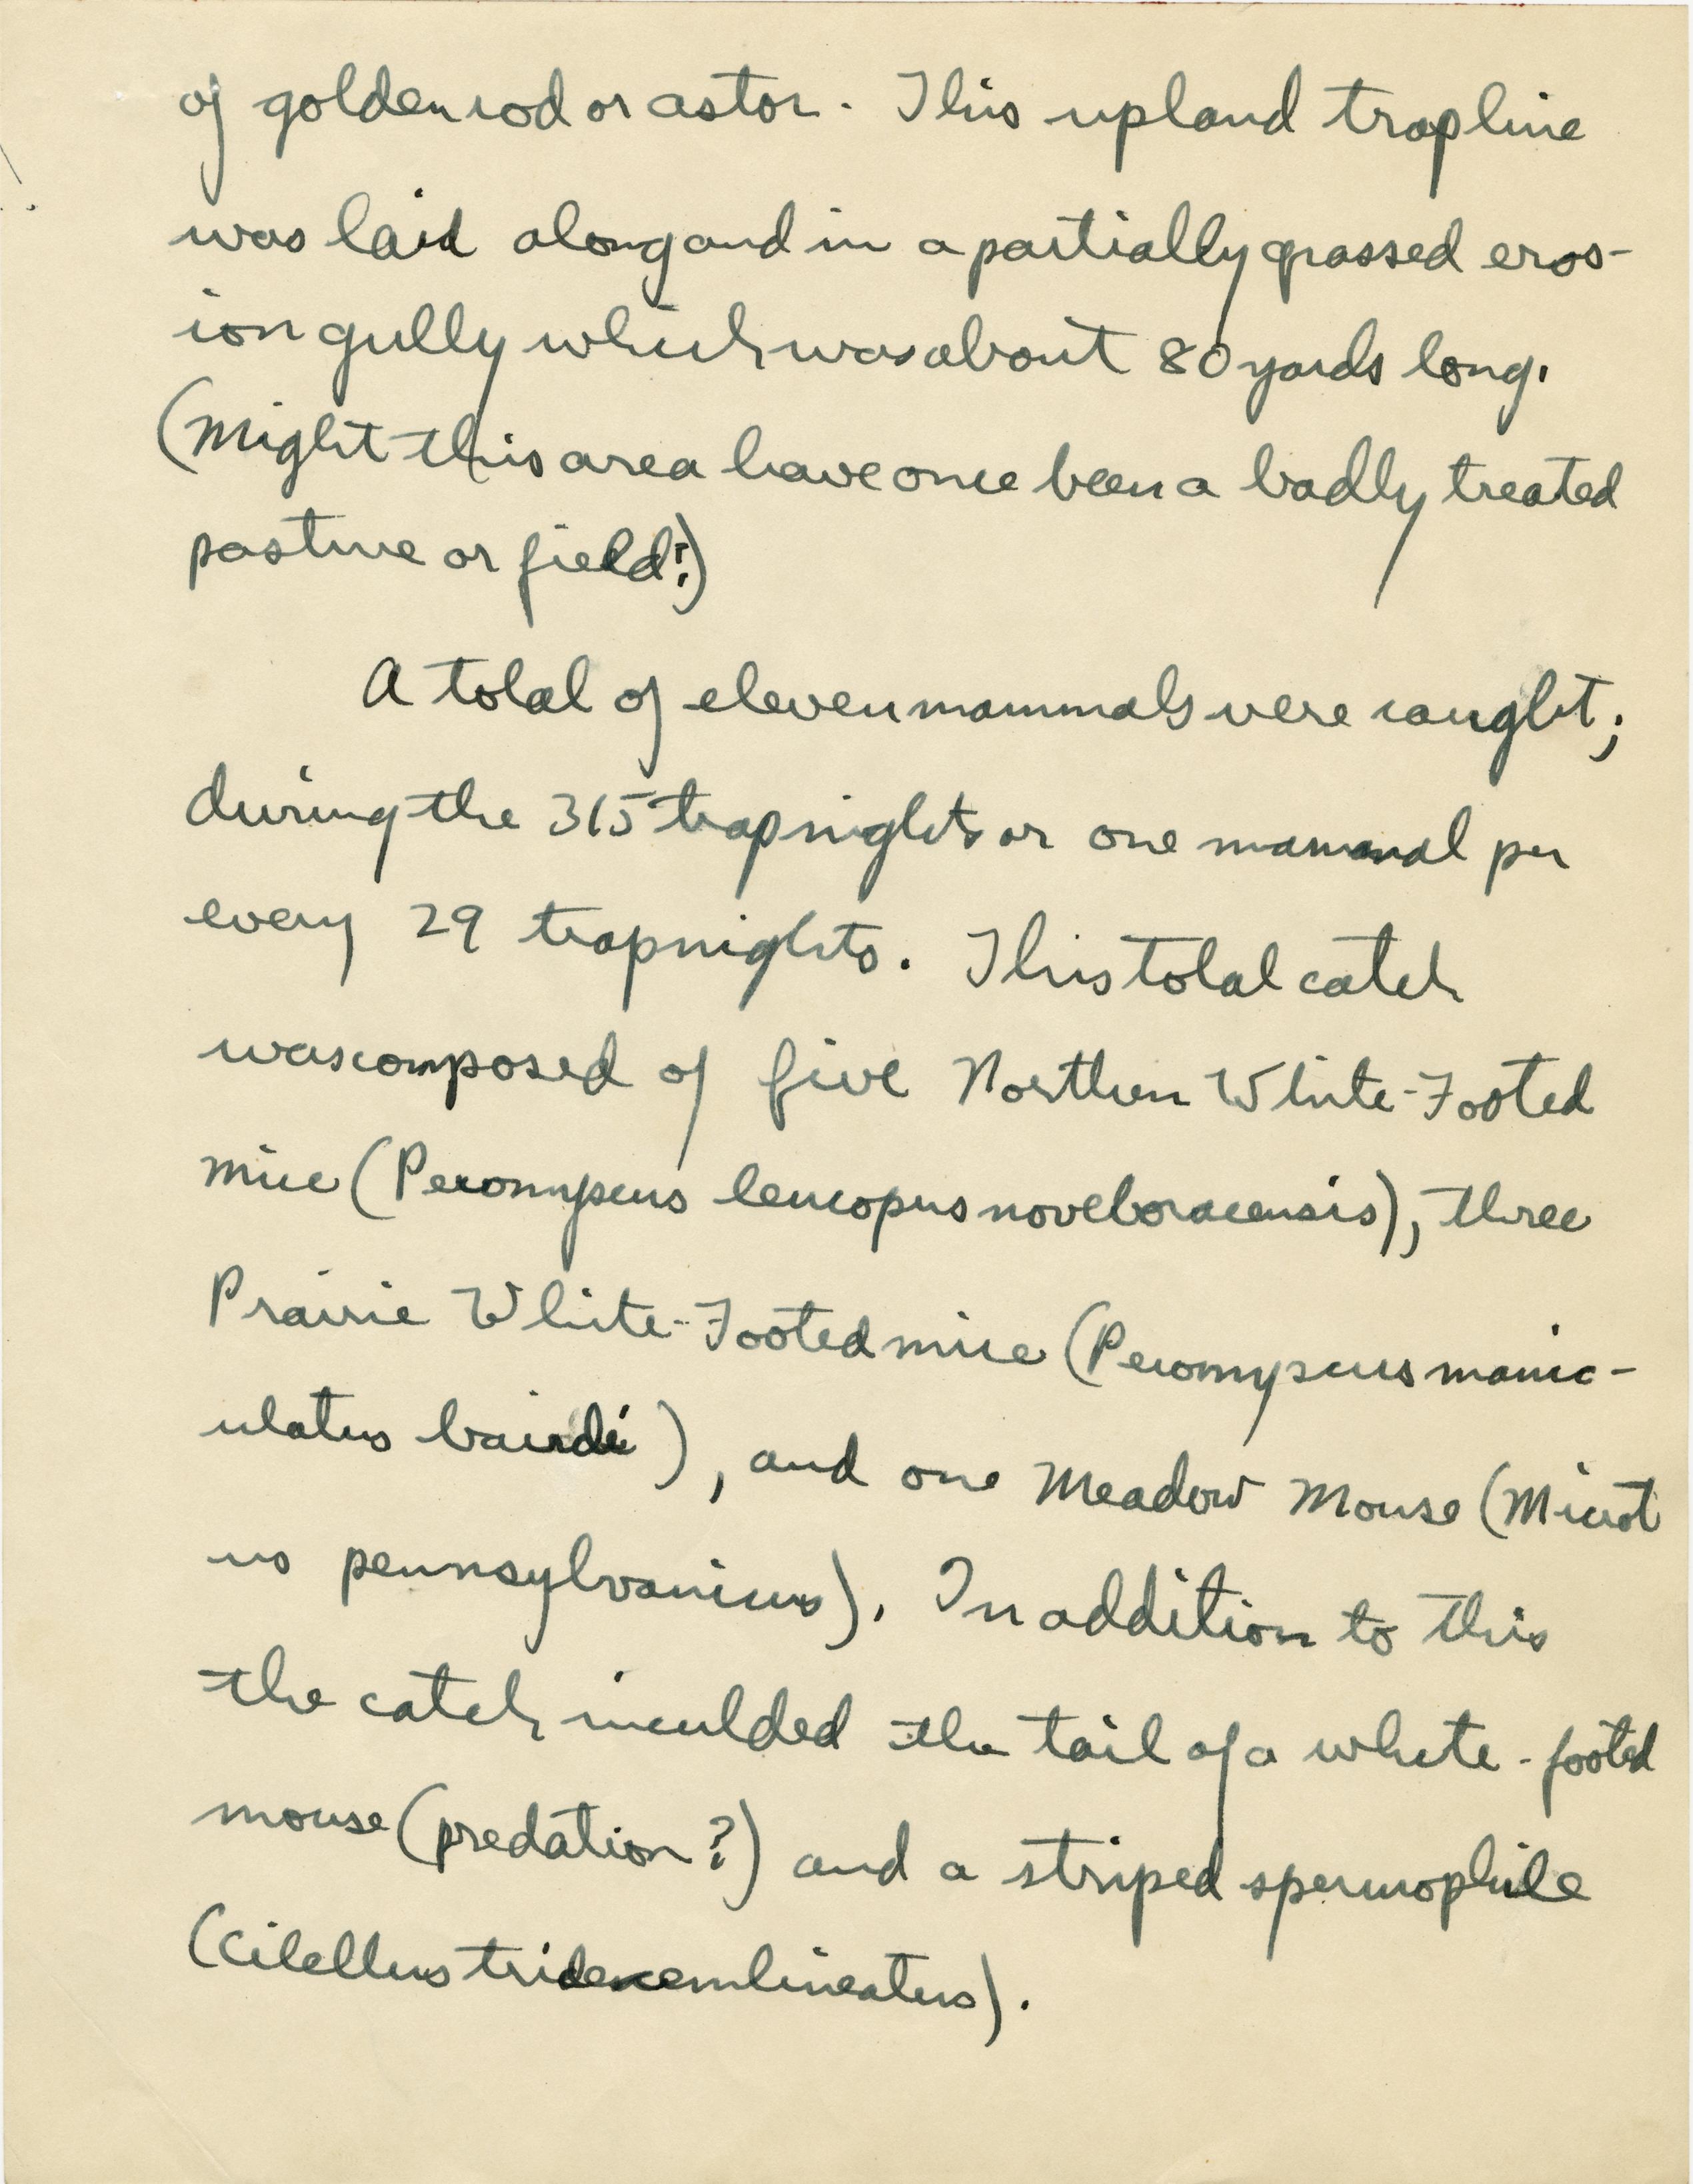 of goldenrod or astor. This upland trapline
was laid along and in a partially grassed eros-
ion gully which was about 80 yards long.
(Might this area have once been a badly treated
pasture or field?)
A total of eleven mammals were caught;
during the 315 trapnights or one mammal per
every 29 trapnights. This total catch
was composed of five Northern White-Footed
mice (Peromyscus leucopus noveboracensis), three
Prairie White-Footed mice (Peromyscus manic-
ulatus bairdi), and one Meadow Mouse (Microt
us pennsylvanicus). In addition to this
the catch inculded the tail of a white-footed
mouse (predation?) and a striped spermophile
(Citellus tridecemlineatus).